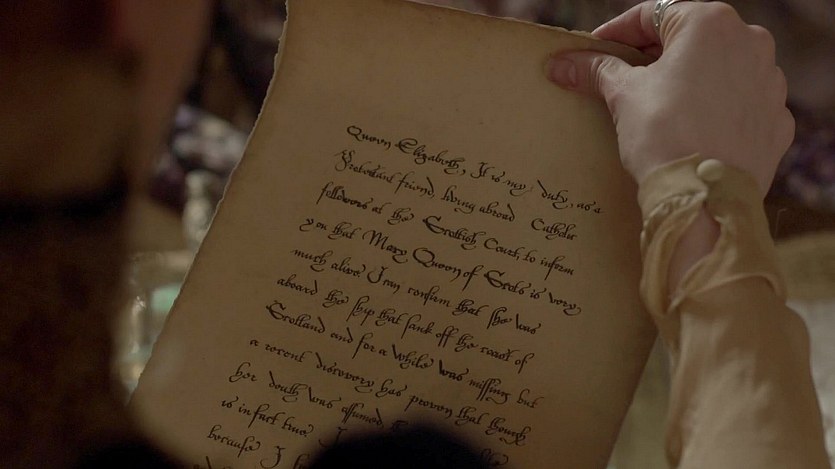 Queen Elizabeth, It is my duty, as a
Protestant friend, living abroad Catholic
followers at the Scottish Court, to inform
you that Mary Queen of Scots is very
much alive. I can confirm that she was
aboard the ship that sank off the coast of
Scotland and for a while was missing but
a recent discovery, has proven that though
her death was assumed
is in fact true. I
because I